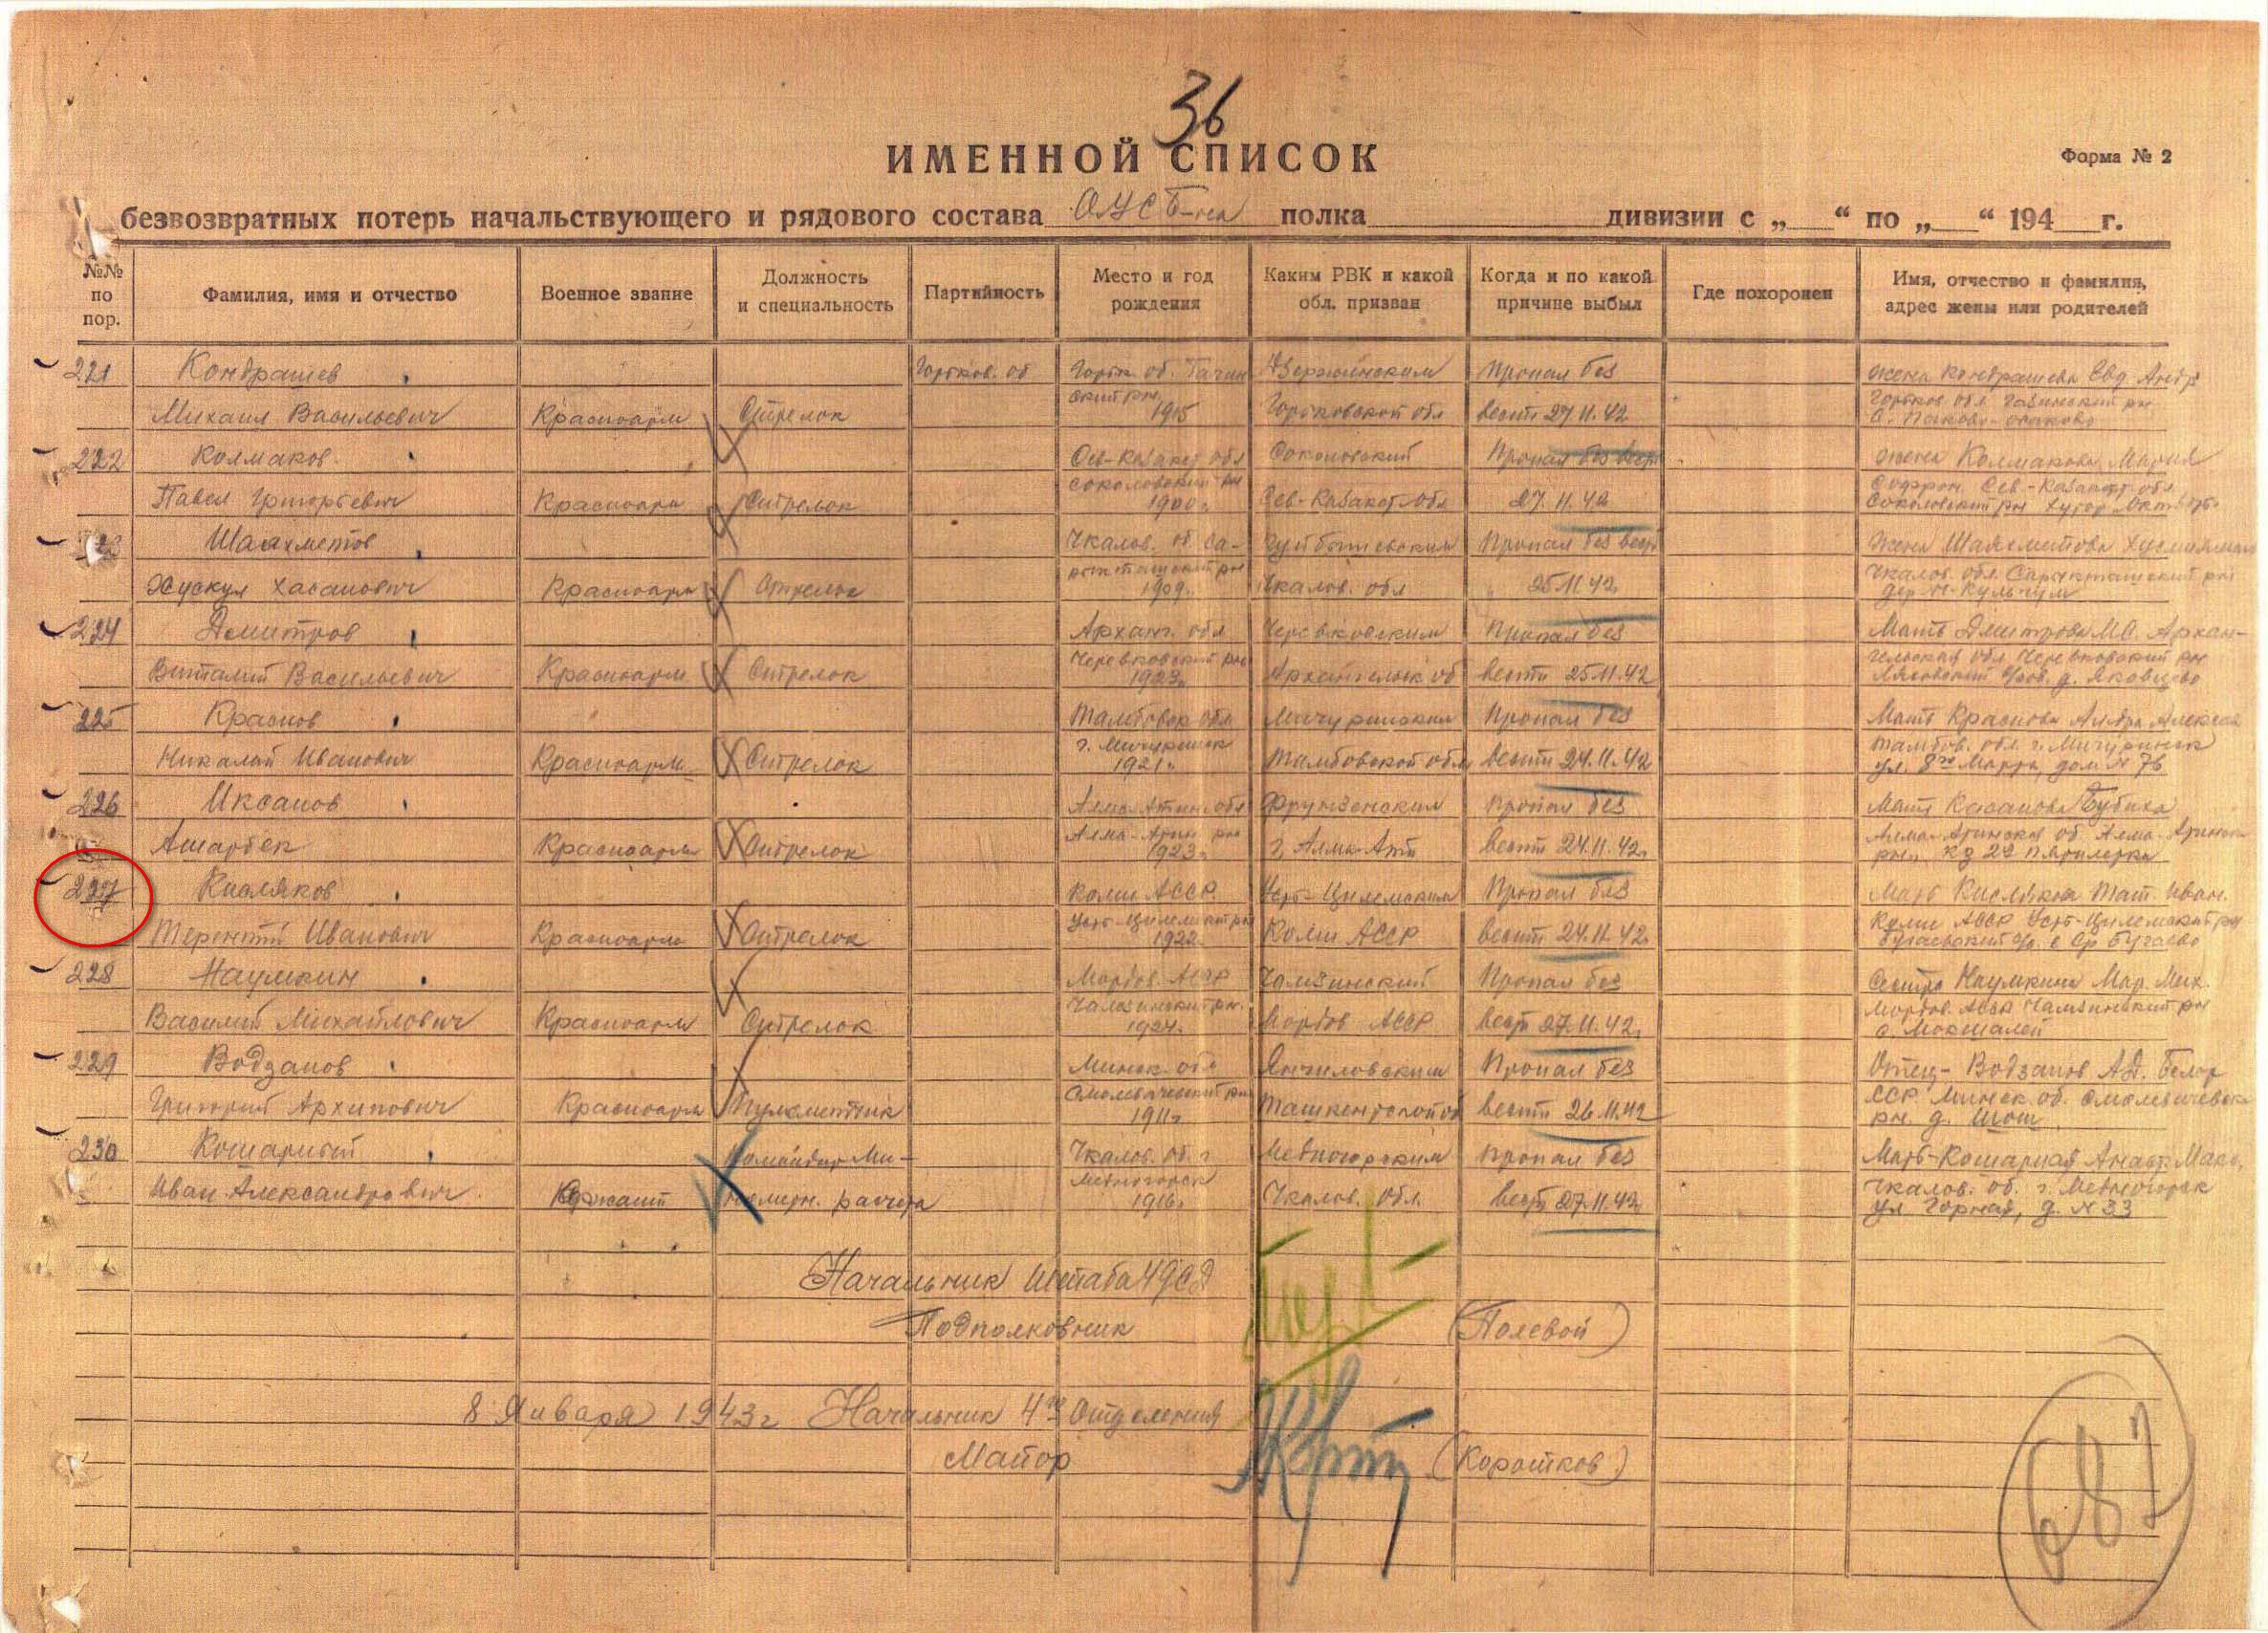 36
ИМЕННОЙ СПИСОК
Форма № 2
безвозвратных потерь начальствующего и рядового состава полка дивизии с „ “ по „ “ 194 г.
№№ по пор. Фамилия, имя и отчество Военное звание Должность и специальность Партийность Место и год рождения Каким РВК и какой обл. призван Когда и по какой причине выбыл Где похоронен Имя, отчество и фамилия, адрес жены или родителей
221 Кондрашев Горьков. об Горьк. об. Дзержинским Пропал без жена Кондрашева Евд. Андр
Михаил Васильевич Красноарм Стрелок 1915 Горьковской обл вести 27.11.42
222 Колмаков Сев-Казахс обл Соколовский Пропал без вест жена Колмакова Мария
Соколовский рн Сев-Казахст. обл
Павел Григорьевич Красноарм Стрелок 1900г Сев-Казахст. обл 27.11.42 Соколовский рн Хутор Октябрь
Шаахметов Чкалов. об. Са- Пропал без вест жена Шаяхметова
Хускул Хасанович Красноарм Стрелок 1909г. Чкалов. обл 25.11.42 Чкалов. обл. Саракташский рн
224 Дмитров Арханг. обл Черевковским Пропал без Мать Дмитрова М.С. Архан-
Черевковский рн гельская обл Черевковский рн
Виталий Васильевич Красноарм Стрелок 1923г. Архангельск об вести 25.11.42 д. Яковцево
225 Краснов Тамбовск обл Мичуринским Пропал без Мать Краснова
г. Мичуринск Тамбов. обл. г. Мичуринск
Николай Иванович Красноарм. Стрелок 1921г Тамбовской обл вести 24.11.42 ул. 8го Марта, дом № 76
226 Иксанов Алма-Атин. обл Фрунзенским Пропал без Мать Касанова Бубиха
Алма-Атин рн Алма-Атинская об. Алма-Атинск
Ашарбек Красноарм Стрелок 1923г. г. Алма-Ата вести 24.11.42г рн.
227 Кисляков Коми АССР. Усть-Цилемским Пропал без Мать Кислякова Тат. Иван.
Усть-Цилемский рн Коми АССР Усть-Цилемский рн
Терентий Иванович Красноарм Стрелок 1922г Коми АССР вести 24.11.42г Бугаевский с/с с Ср Бугаево
228 Наумкин Мордов. АССР Чамзинский Пропал без Сестра Наумкина Мар. Мих.
Чамзинский рн. Мордов. АССР Чамзинский рн
Василий Михайлович Красноарм Стрелок 1924г. Мордов АССР вест 27.11.42г с. Мокшалей
229 Водзанов Минск. обл Янгиловским Пропал без Отец- Водзанов А.Д. Белор
Смолевичевский рн ССР. Минск. об. Смолевичевск
Григорий Архипович Красноарм Пулеметчик 1911г Ташкентской об вести 26.11.42 рн. д. Шош
230 Кошарный Командир Ми- Чкалов. об. г Медногорским Пропал без Мать-Кошарная Анаст. Макс.
Медногорск Чкалов. об. г. Медногорск
Иван Александрович Сержант нометн. расчета 1916г. Чкалов. обл. вест 27.11.42г ул Горная, д. № 33
Начальник штаба 49СД
Подполковник (Полевой)
8 Января 1943г Начальник 4го Отделения
Майор (Коротков)
687